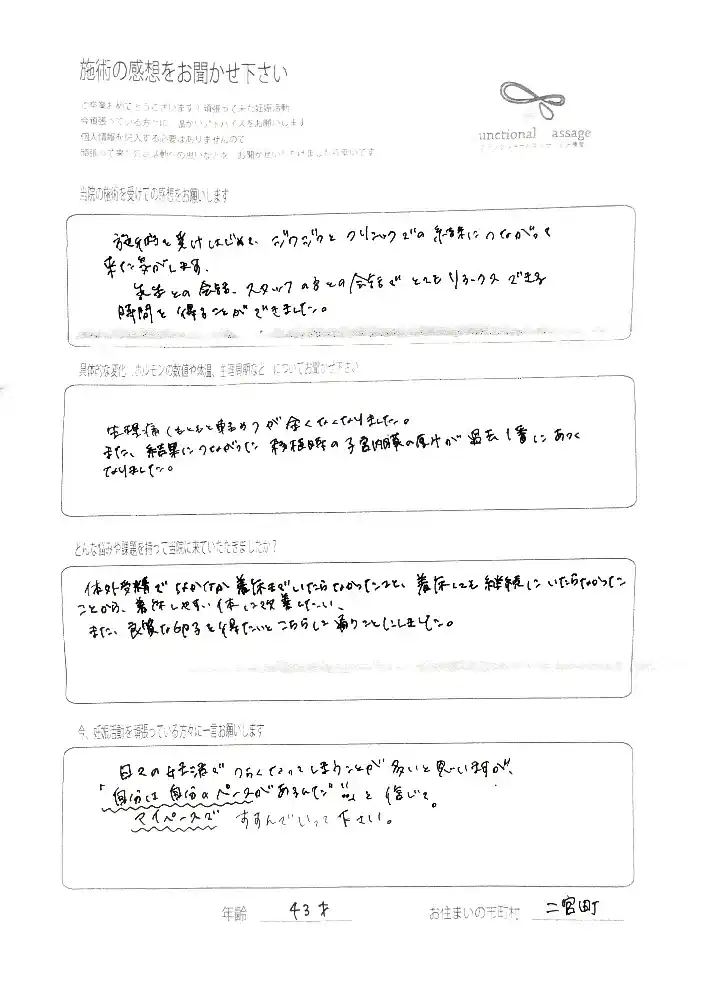 施術の感想をお聞かせ下さい
ご卒業おめでとうございます！頑張って来た妊娠活動
今頑張っている方々に　温かいアドバイスをお願いします
個人情報を記入する必要はありませんので
頑張って来た
お聞かせいただけましたら幸いです
unctional assage
当院の施術を受けての感想をお願いします
施術を受けはじめて、ジワジワとクリニックでの結果につながって
来た気がします。
先生との会話、スタッフの方との会話でとてもリラックスできる
時間を得ることができました。
具体的な変化…ホルモンの数値や体温、生理周期など　についてお聞かせ下さい
生理痛(もともと軽めの)が全くなくなりました。
また、結果につながった移植時の子宮内膜の厚さが過去1番にあつく
なりました。
どんな悩みや課題を持って当院に来ていただきましたか？
体外受精でなかなか着床までいたらなかったこと、着床しても継続にいたらなかった
ことから、着床しやすい体に改善したい、
また、良質な卵子を得たいとこちらに通うことにしました。
今、妊娠活動を頑張っている方々に一言お願いします
日々の妊活でつらくなってしまうことが多いと思いますが、
「自分は自分のペースがあるんだ」と信じて。
マイペースですすんでいって下さい。
年齢　43才　お住まいの市町村　二宮町